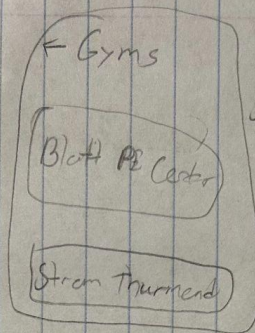 ← Gyms
Blatt PE Center
Strom Thurmond